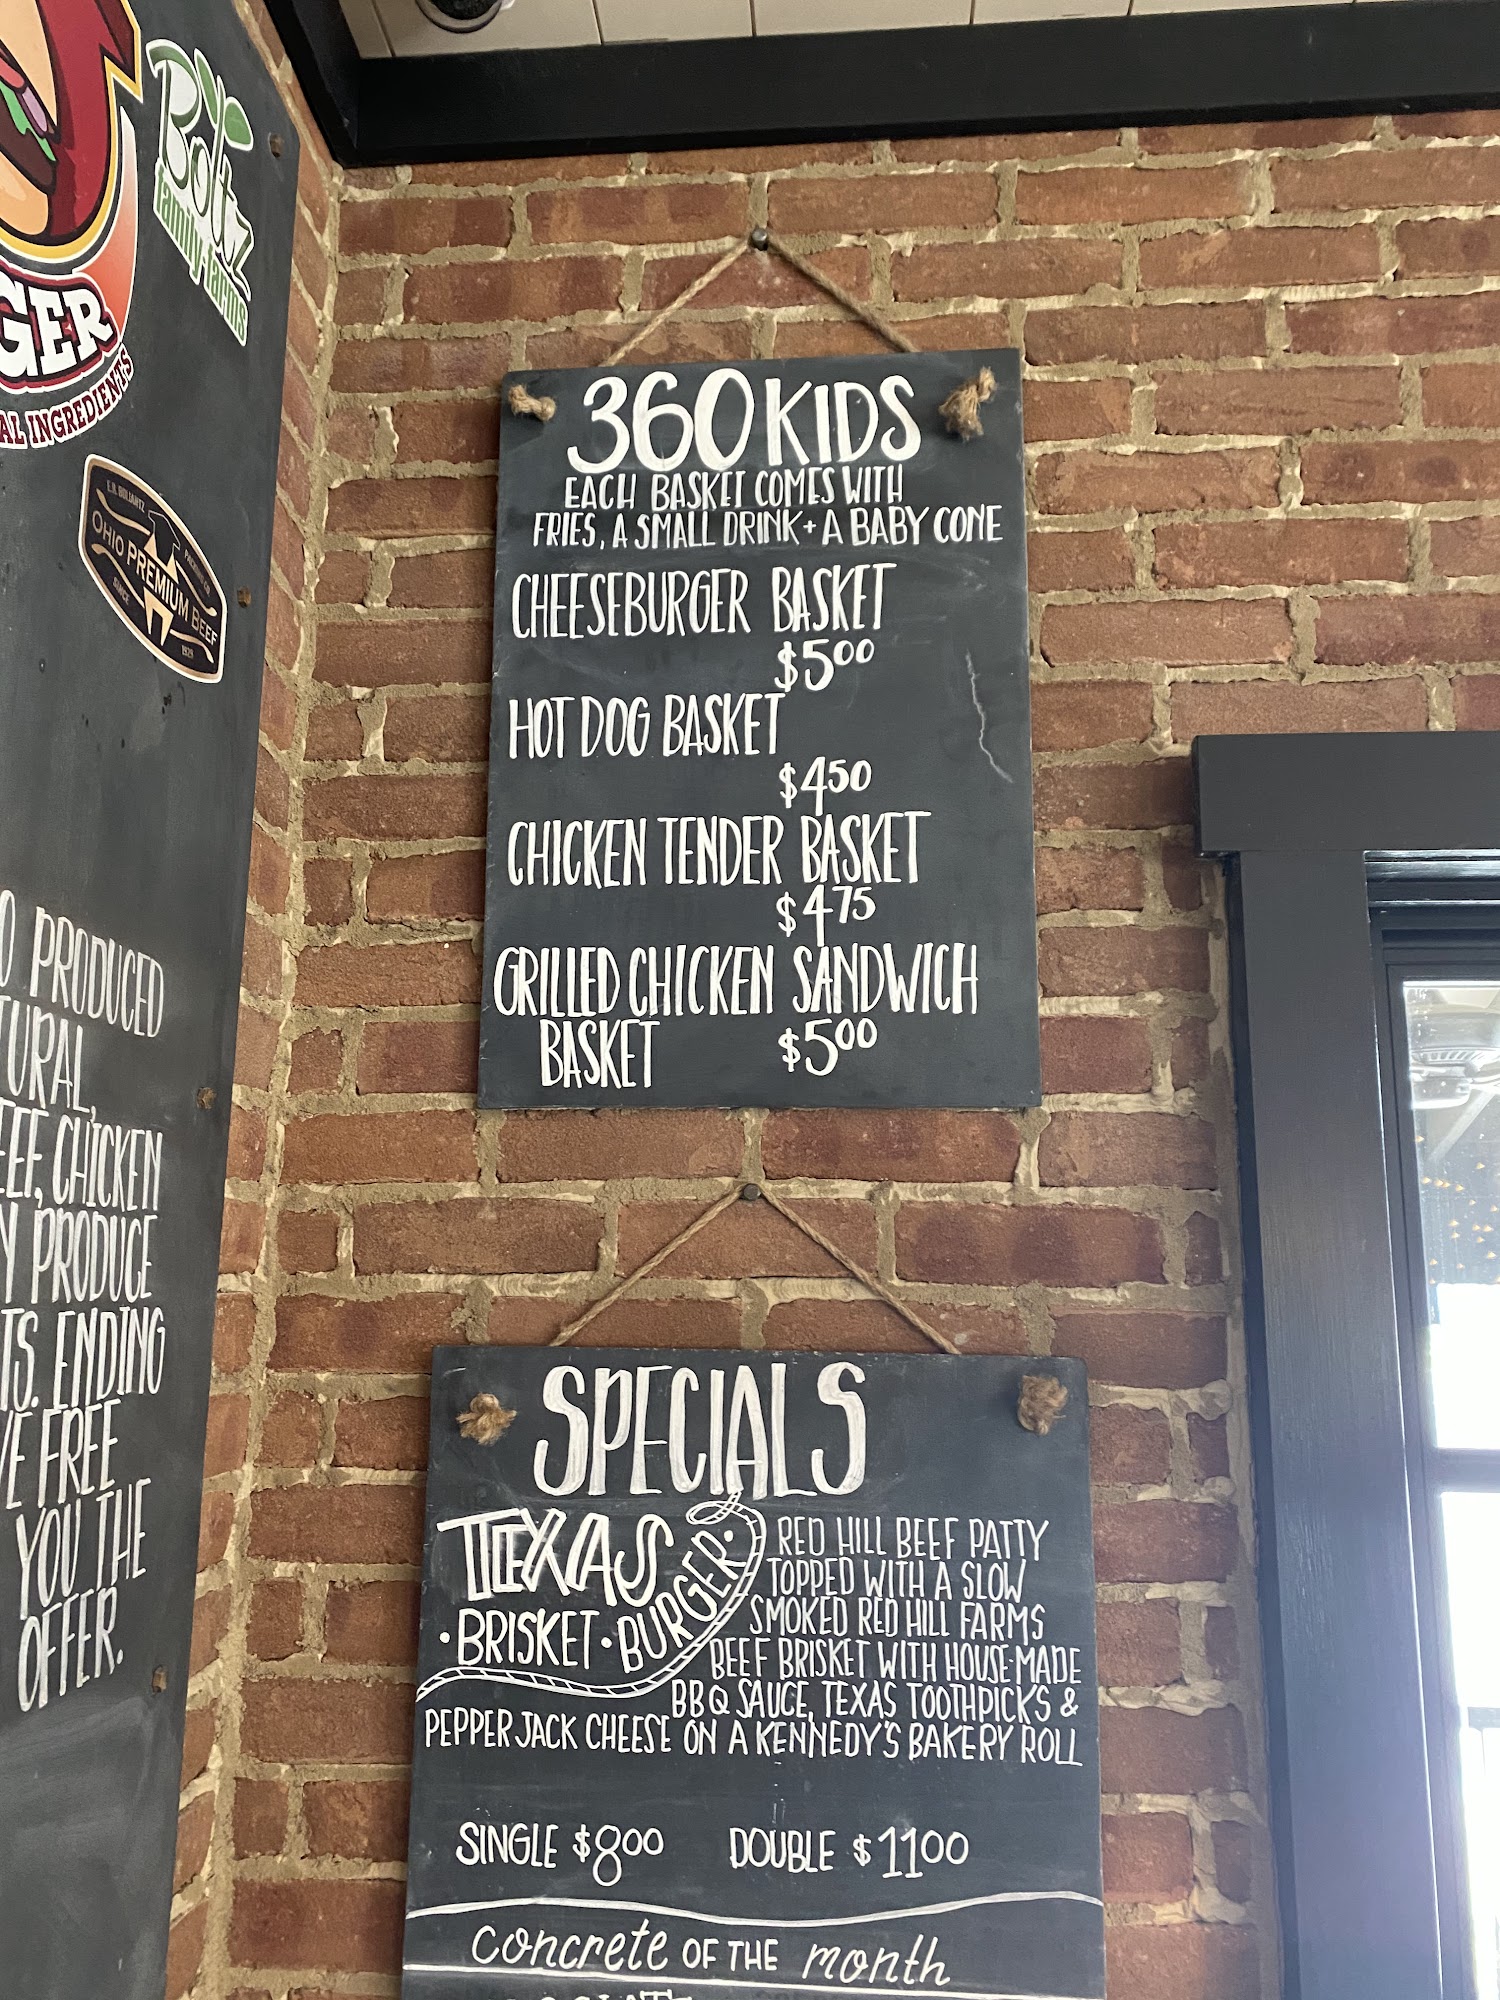 GER
AL INGREDIENTS
Boltz
family farms
OHIO PREMIUM BEEF
SINCE
1929
PRODUCED
TURAL,
EEF, CHICKEN
Y PRODUCE
TS. ENDING
VE FREE
YOU THE
OFFER.
360 KIDS
EACH BASKET COMES WITH
FRIES, A SMALL DRINK + A BABY CONE
CHEESEBURGER BASKET
$5.00
HOT DOG BASKET
$4.50
CHICKEN TENDER BASKET
$4.75
GRILLED CHICKEN SANDWICH
BASKET $5.00
SPECIALS
TEXAS
• BRISKET • BURGER •
RED HILL BEEF PATTY
TOPPED WITH A SLOW
SMOKED RED HILL FARMS
BEEF BRISKET WITH HOUSE-MADE
BBQ SAUCE, TEXAS TOOTHPICKS &
PEPPER JACK CHEESE ON A KENNEDY'S BAKERY ROLL
SINGLE $8.00 DOUBLE $11.00
concrete OF THE month